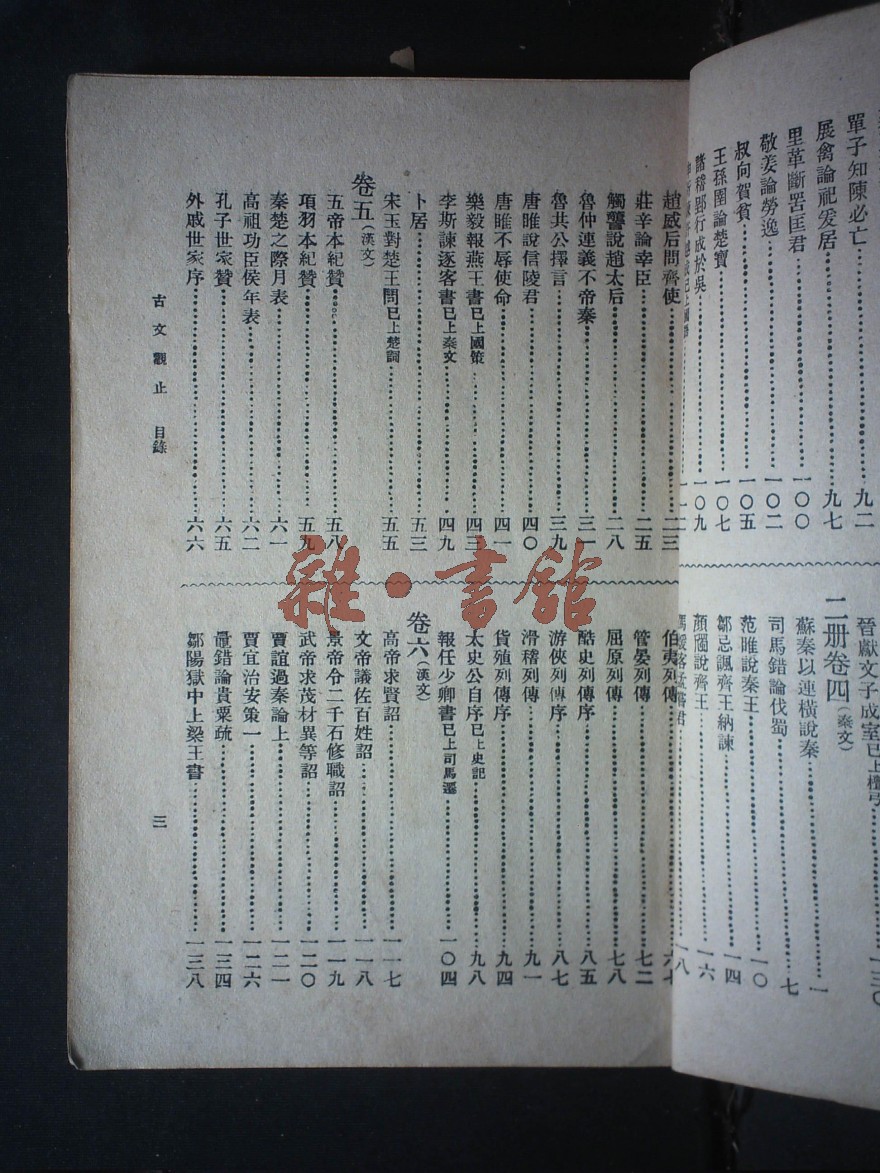 單子知陳必亡⋯⋯九二
展禽論祀爰居⋯⋯九七
里革斷罟匡君⋯⋯一〇〇
敬姜論勞逸⋯⋯一〇二
叔向賀貧⋯⋯一〇五
王孫圉論楚寶⋯⋯一〇七
諸稽郢行成於吳⋯⋯一〇九
晉獻文子成室已上檀弓⋯⋯一三〇
二册卷四(秦文)
蘇秦以連橫說秦⋯⋯一
司馬錯論伐蜀⋯⋯七
范睢說秦王⋯⋯一〇
鄒忌諷齊王納諫⋯⋯一四
顏斶說齊王⋯⋯一六
馮煖客孟嘗君⋯⋯一八
趙威后問齊使⋯⋯二三
莊辛論幸臣⋯⋯二五
觸讋說趙太后⋯⋯二八
魯仲連義不帝秦⋯⋯三一
魯共公擇言⋯⋯三九
唐睢說信陵君⋯⋯四〇
唐睢不辱使命⋯⋯四一
樂毅報燕王書已上國策⋯⋯四三
李斯諫逐客書已上秦文⋯⋯四九
卜居⋯⋯五三
宋玉對楚王問已上楚詞⋯⋯五五
卷五(漢文)
五帝本紀贊⋯⋯五八
項羽本紀贊⋯⋯五九
秦楚之際月表⋯⋯六一
高祖功臣侯年表⋯⋯六二
孔子世家贊⋯⋯六五
外戚世家序⋯⋯六六
伯夷列傳⋯⋯六七
管晏列傳⋯⋯七二
屈原列傳⋯⋯七八
酷史列傳序⋯⋯八五
游俠列傳序⋯⋯八七
滑稽列傳⋯⋯九一
貨殖列傳序⋯⋯九四
太史公自序已上史記⋯⋯九八
報任少卿書已上司馬遷⋯⋯一〇四
卷六(漢文)
高帝求賢詔⋯⋯一一七
文帝議佐百姓詔⋯⋯一一八
景帝令二千石修職詔⋯⋯一一九
武帝求茂材異等詔⋯⋯一二〇
賈誼過秦論上⋯⋯一二一
賈宜治安策一⋯⋯一二六
鼂錯論貴粟疏⋯⋯一三四
鄒陽獄中上梁王書⋯⋯一三八
古文觀止 目錄
三
雜·書館